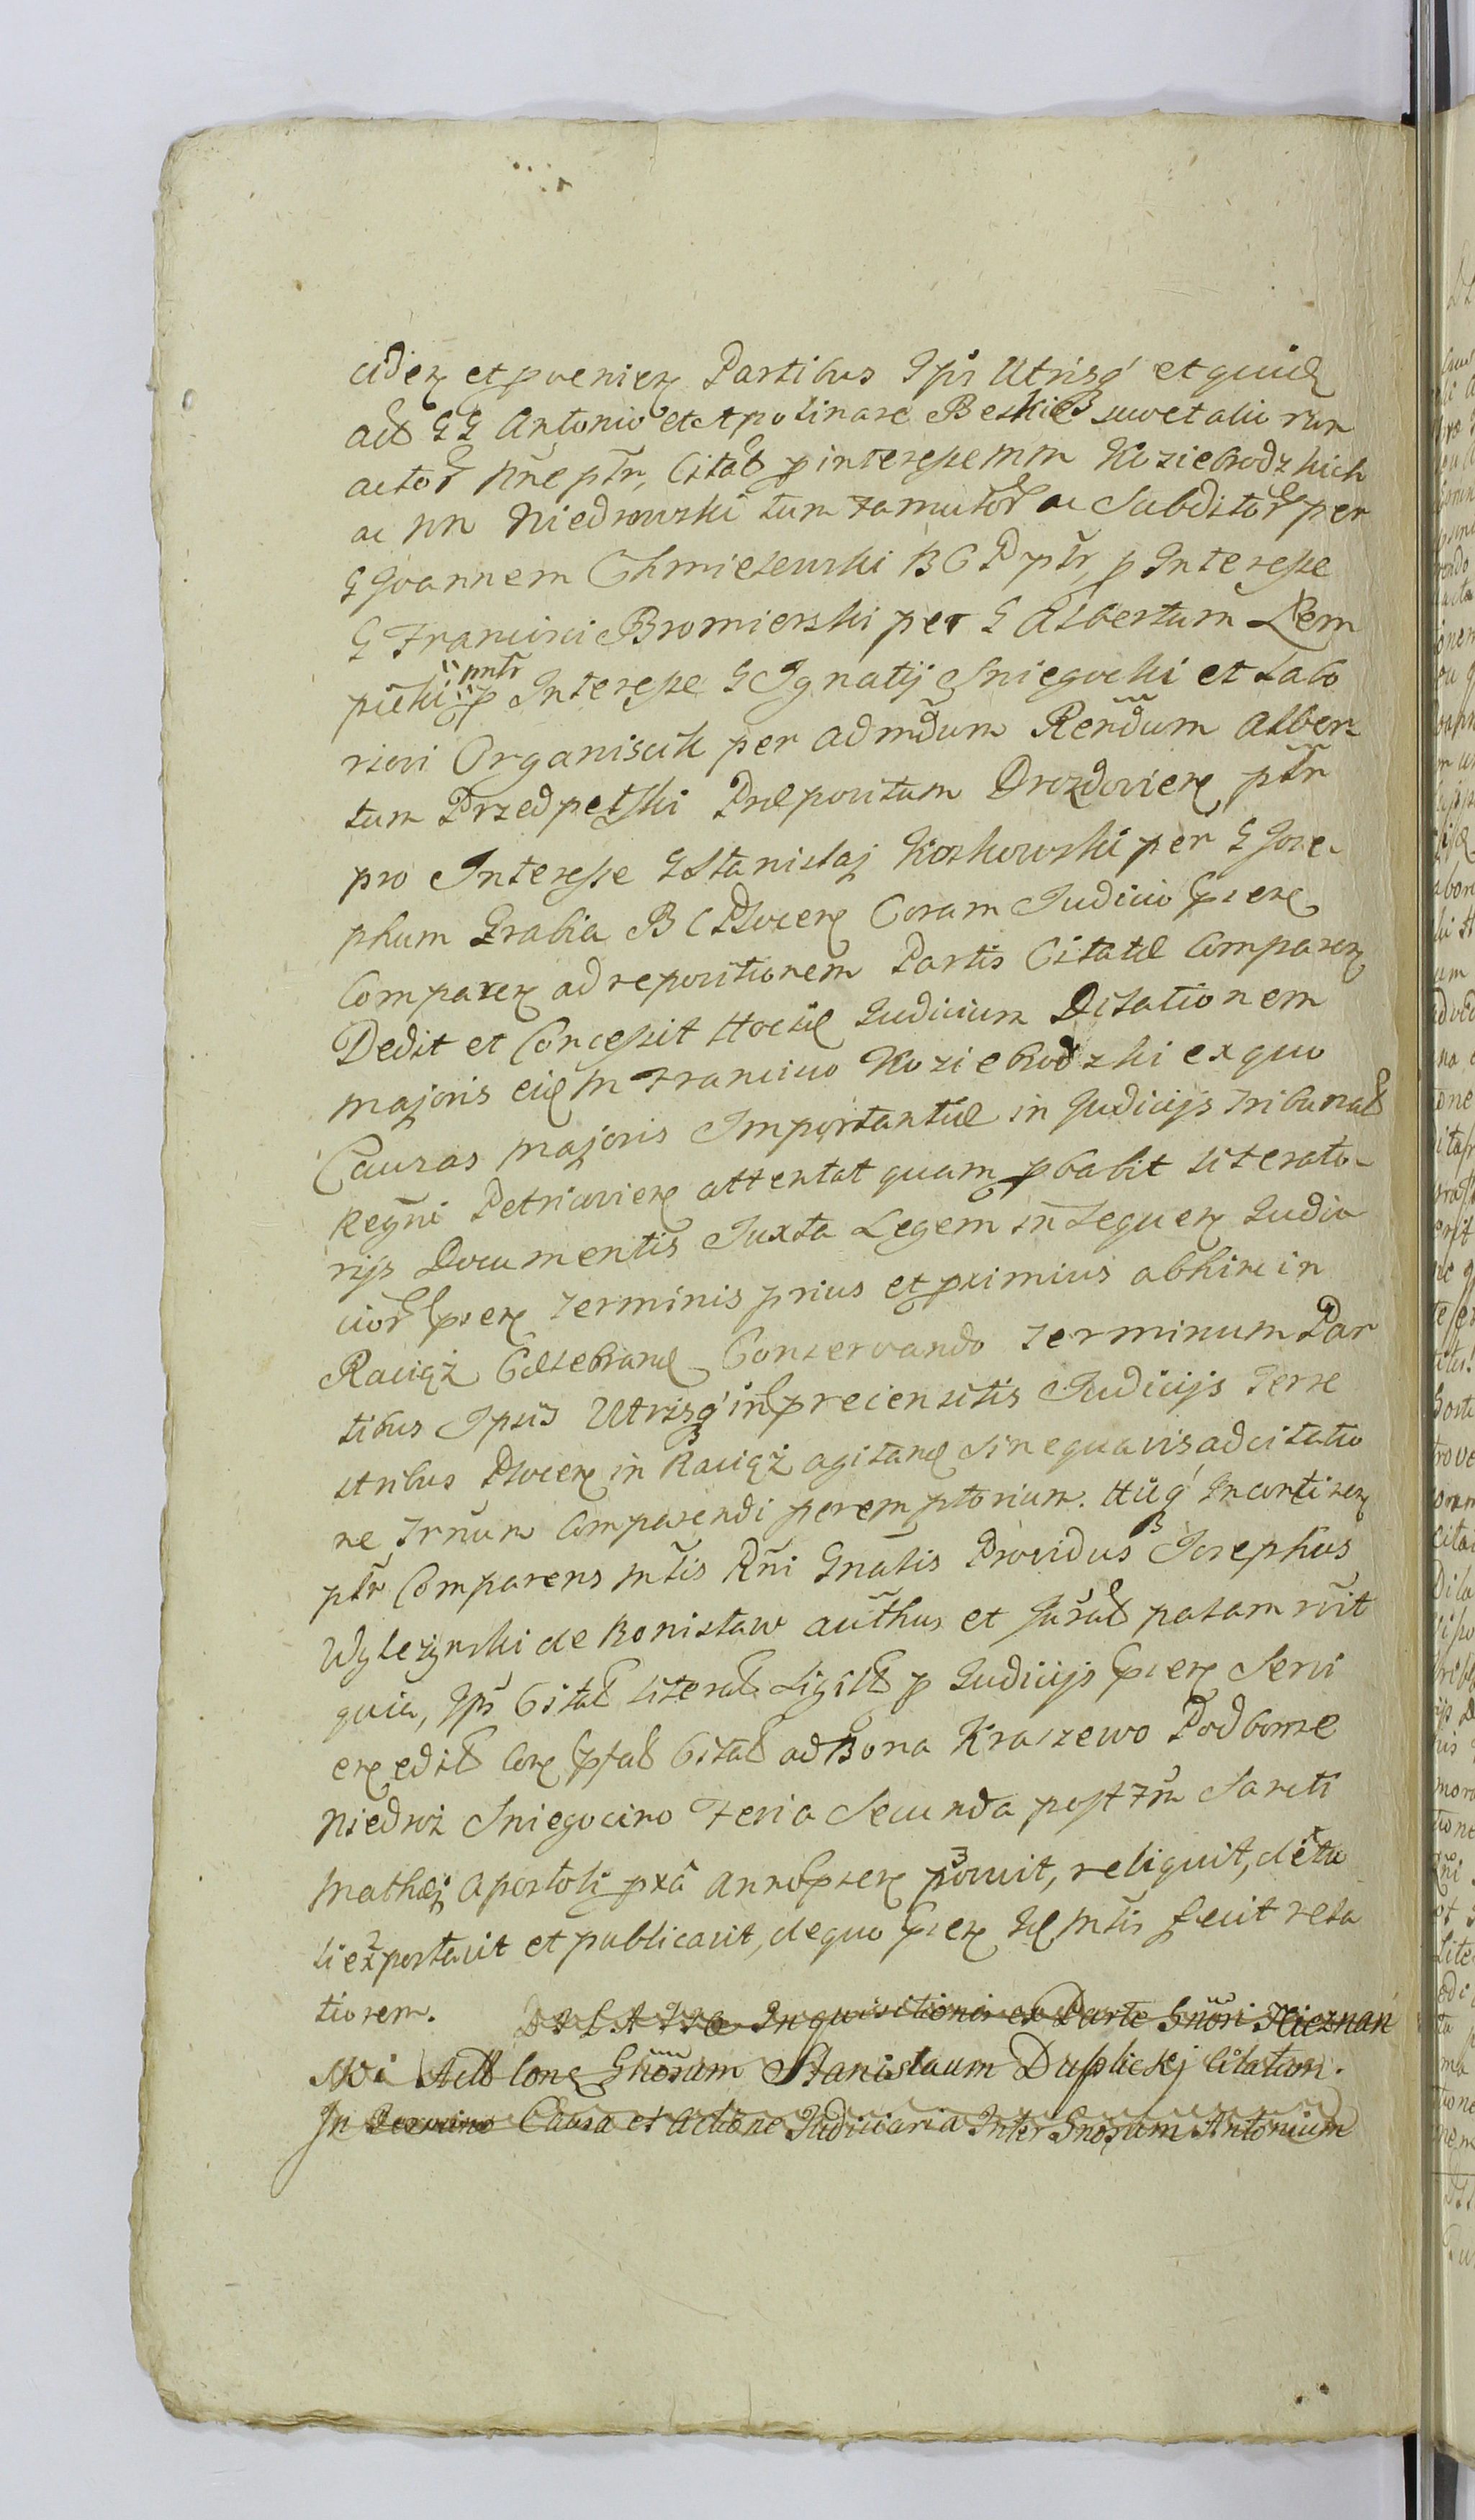 ciden et pvenien Partibus Ipis Utrisq et quid
act GG Antonio et Apolinare Beskie suo et alior
actor Nne ptr, Citat p interesse MM Koziebrodzkich
ac NN Niedrowski tum Famulor ac Subditor per
G Joannem Chmielewski BCP ptr, p Interesse
G Francisci Bromierski per G Albertum Lem
picki pntr p Interesse G Ignatij Sniegocki et Labo
riosi Organiscik per admdum Rendum Alber-
tum Przedpelski Praepositum Drozdovien ptr
pro Interesse G Stanislaj Koskowski per G Jose-
phum Grabia BC Plocen Coram Judicio psen
Comparen ad repositionem Partis Citatae Comparen
Dedit et Concessit Hocce Judicium Dilationem
Majoris eid M Francisco Koziebrodzki ex quo
Causas Majoris Importantiae in Judicijs Tribunal
Regni Petricovien attentat quam pbabit Literato-
rijs Documentis Juxta Legem in Sequen Judi
cior psen Terminis prius et pximius abhinc in
Raciąż Celebrand Conservando Terminum Par
tibus Ipsis Utrisq in precensitis Judicijs Terre
stribus Plocen in Raciąż agitand sine quavis adcitatio
ne Trnum Comparendi peremptorium. Huq Incontinen
ptr Comparens Mtis Rni Gnalis Providus Josephus
Wylezynski de Bonislaw authus et Jurat palam rvit
quia, Ips Citat Literat Sigilt p Judicijs psen Servi
en edit Con psat Citat ad Bona Kraszewo Podborne
Niedroż Sniegocino Feria Secunda post Fm Sancti
Mathaej Apostoli pxa Anno psen posuit, reliquit, de
li exportavit et publicavit, de quo psen Mtis fecit rela
tionem. DILATIO Inquisitionis ex Parte Gnosi Kieznan
ski Act Con Gnosum Stanislaum Duplickj Citatum.
In Termino Causa et Actione Judiciaria Inter Gnosum Antonium